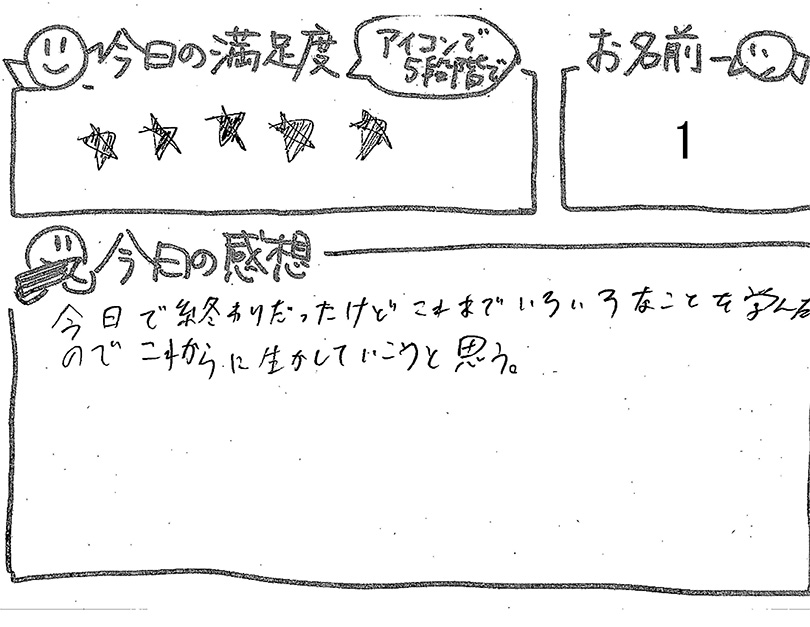 今日の満足度
アイコンで
5段階で
お名前
1
今日の感想
今日で終わりだったけどこれまでいろいろなことを学んだ
のでこれからに生かしていこうと思う。